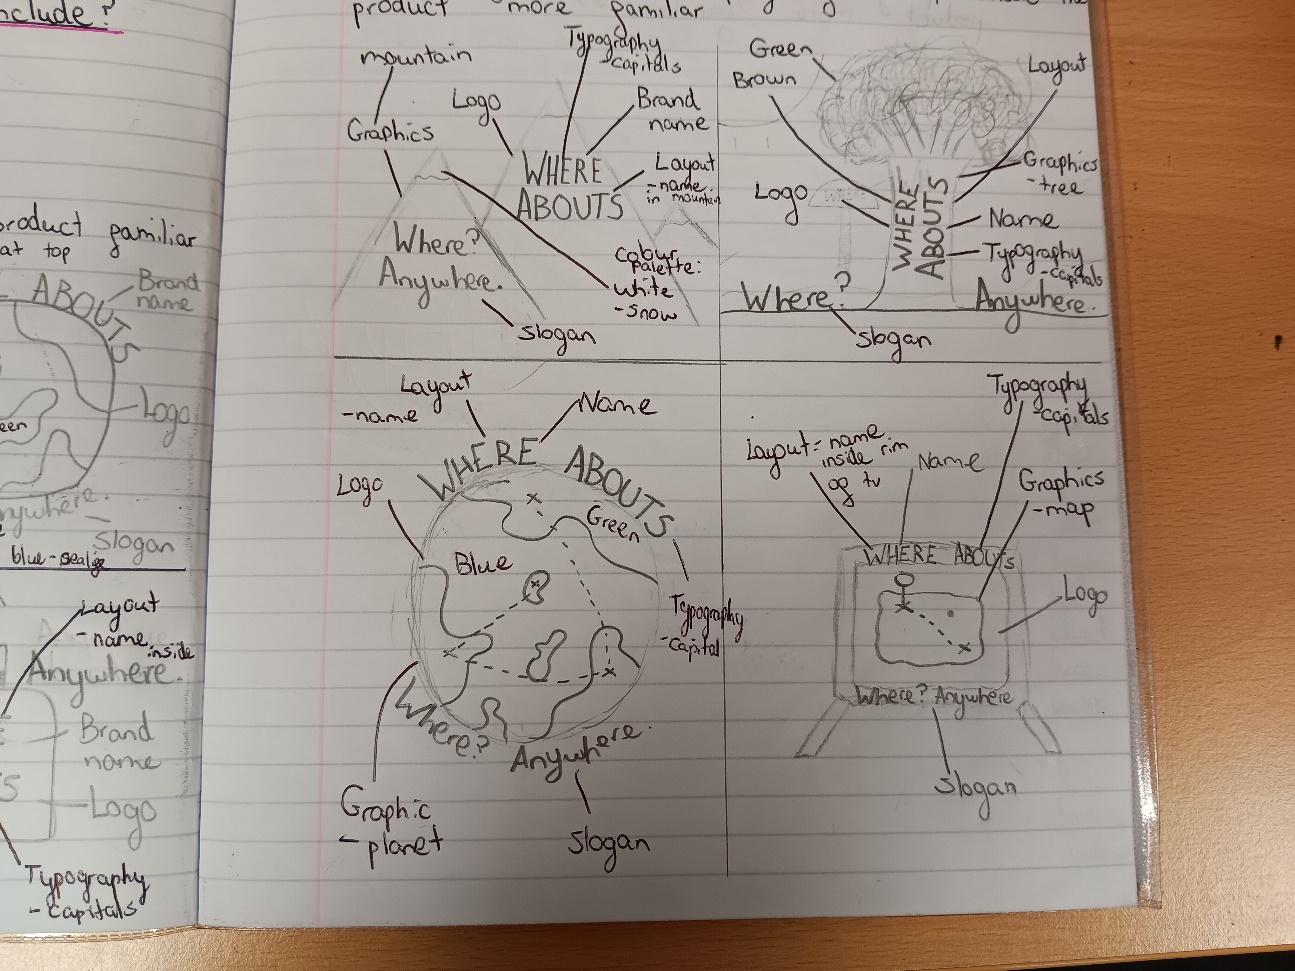 nclude?
product familiar
at top
ABOUTS
Brand
name
Logo
een
nywhere.
Slogan
blue-sea
Layout
-name
inside
Anywhere.
Brand
name
Logo
Typography
- capitals
product more familiar
mountain
Graphics
Logo
Typography
- capitals
Brand
name
WHERE
ABOUTS
Layout
-name
in mountain
Where?
Anywhere.
Colour
palette:
white
- snow
Slogan
Green
Brown
Layout
Graphics
- tree
Logo
WHERE
WHERE
ABOUTS
Name
Typography
- capitals
Where?
Anywhere.
Slogan
Layout
-name
Name
WHERE ABOUTS
Logo
Green
Blue
Typography
- Capital
Where?
Anywhere.
Graphic
- planet
Slogan
Typography
- capitals
Layout = name
inside rim
of tv
Name
Graphics
- map
WHERE ABOUTs
Logo
Where? Anywhere
Slogan